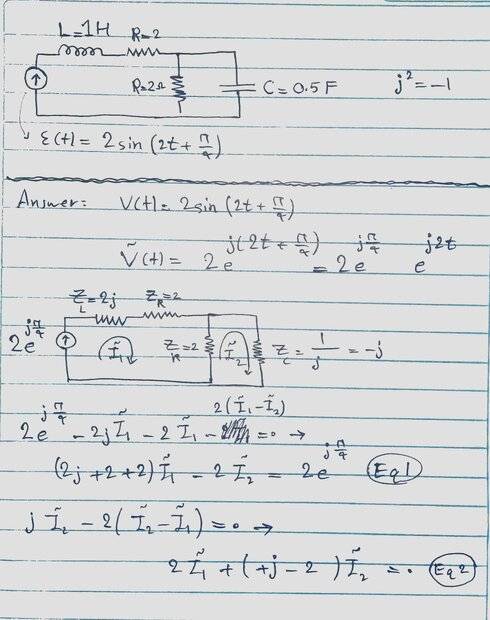 L=1H R=2
R=2Ω C=0.5F j²=-1
ε(t)= 2sin(2t+π/4)
Answer: V(t)= 2sin(2t+π/4)
Ṽ(t)= 2e^{j(2t+π/4)} = 2e^{jπ/4} e^{j2t}
Z_L=2j Z_R=2
2e^{jπ/4} Ĩ₁ Z_R=2 Ĩ₂ Z_C= 1/j = -j
2(Ĩ₁-Ĩ₂)
2e^{jπ/4} -2jĨ₁ -2Ĩ₁ - =0 →
(2j+2+2)Ĩ₁ -2Ĩ₂ = 2e^{jπ/4} Eq1
jĨ₂ -2(Ĩ₂-Ĩ₁)=0 →
2Ĩ₁ +(+j-2)Ĩ₂ =0 Eq2